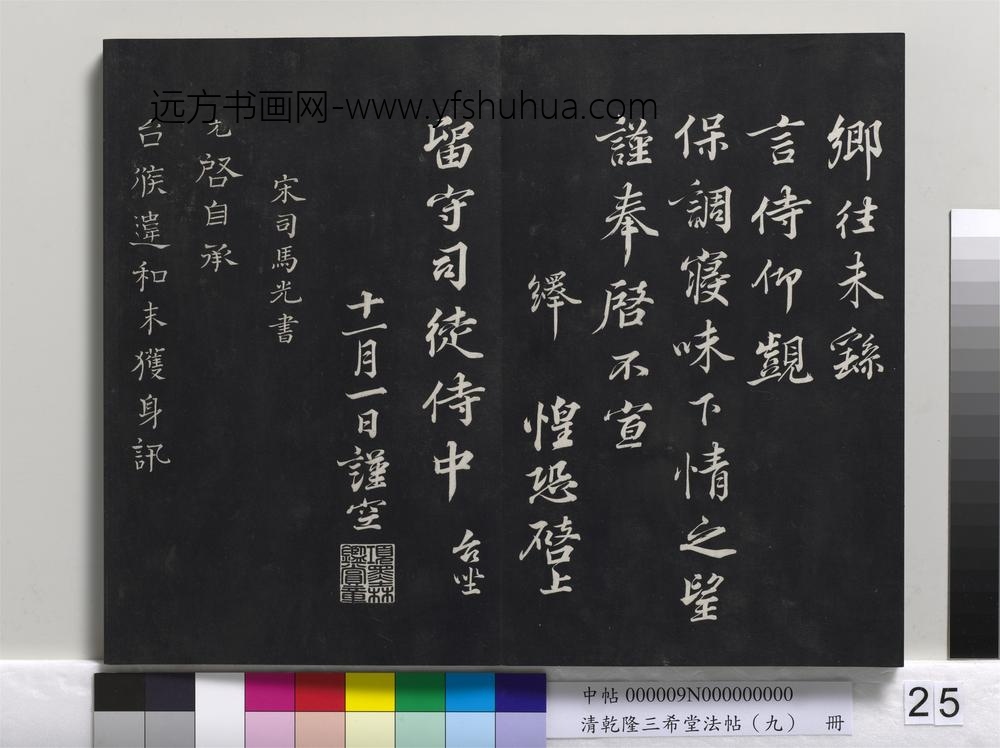 鄉往未繇
言侍仰覬
保調寢味下情之望
謹奉啓不宣
繹 惶恐啓上
留守司徒侍中 台坐
十一月一日謹空
項叢林鑑賞章
宋司馬光書
光啓自承
台候違和未獲身訊
远方书画网-www.yfshuhua.com
中帖 000009N000000000
清乾隆三希堂法帖（九） 冊
25